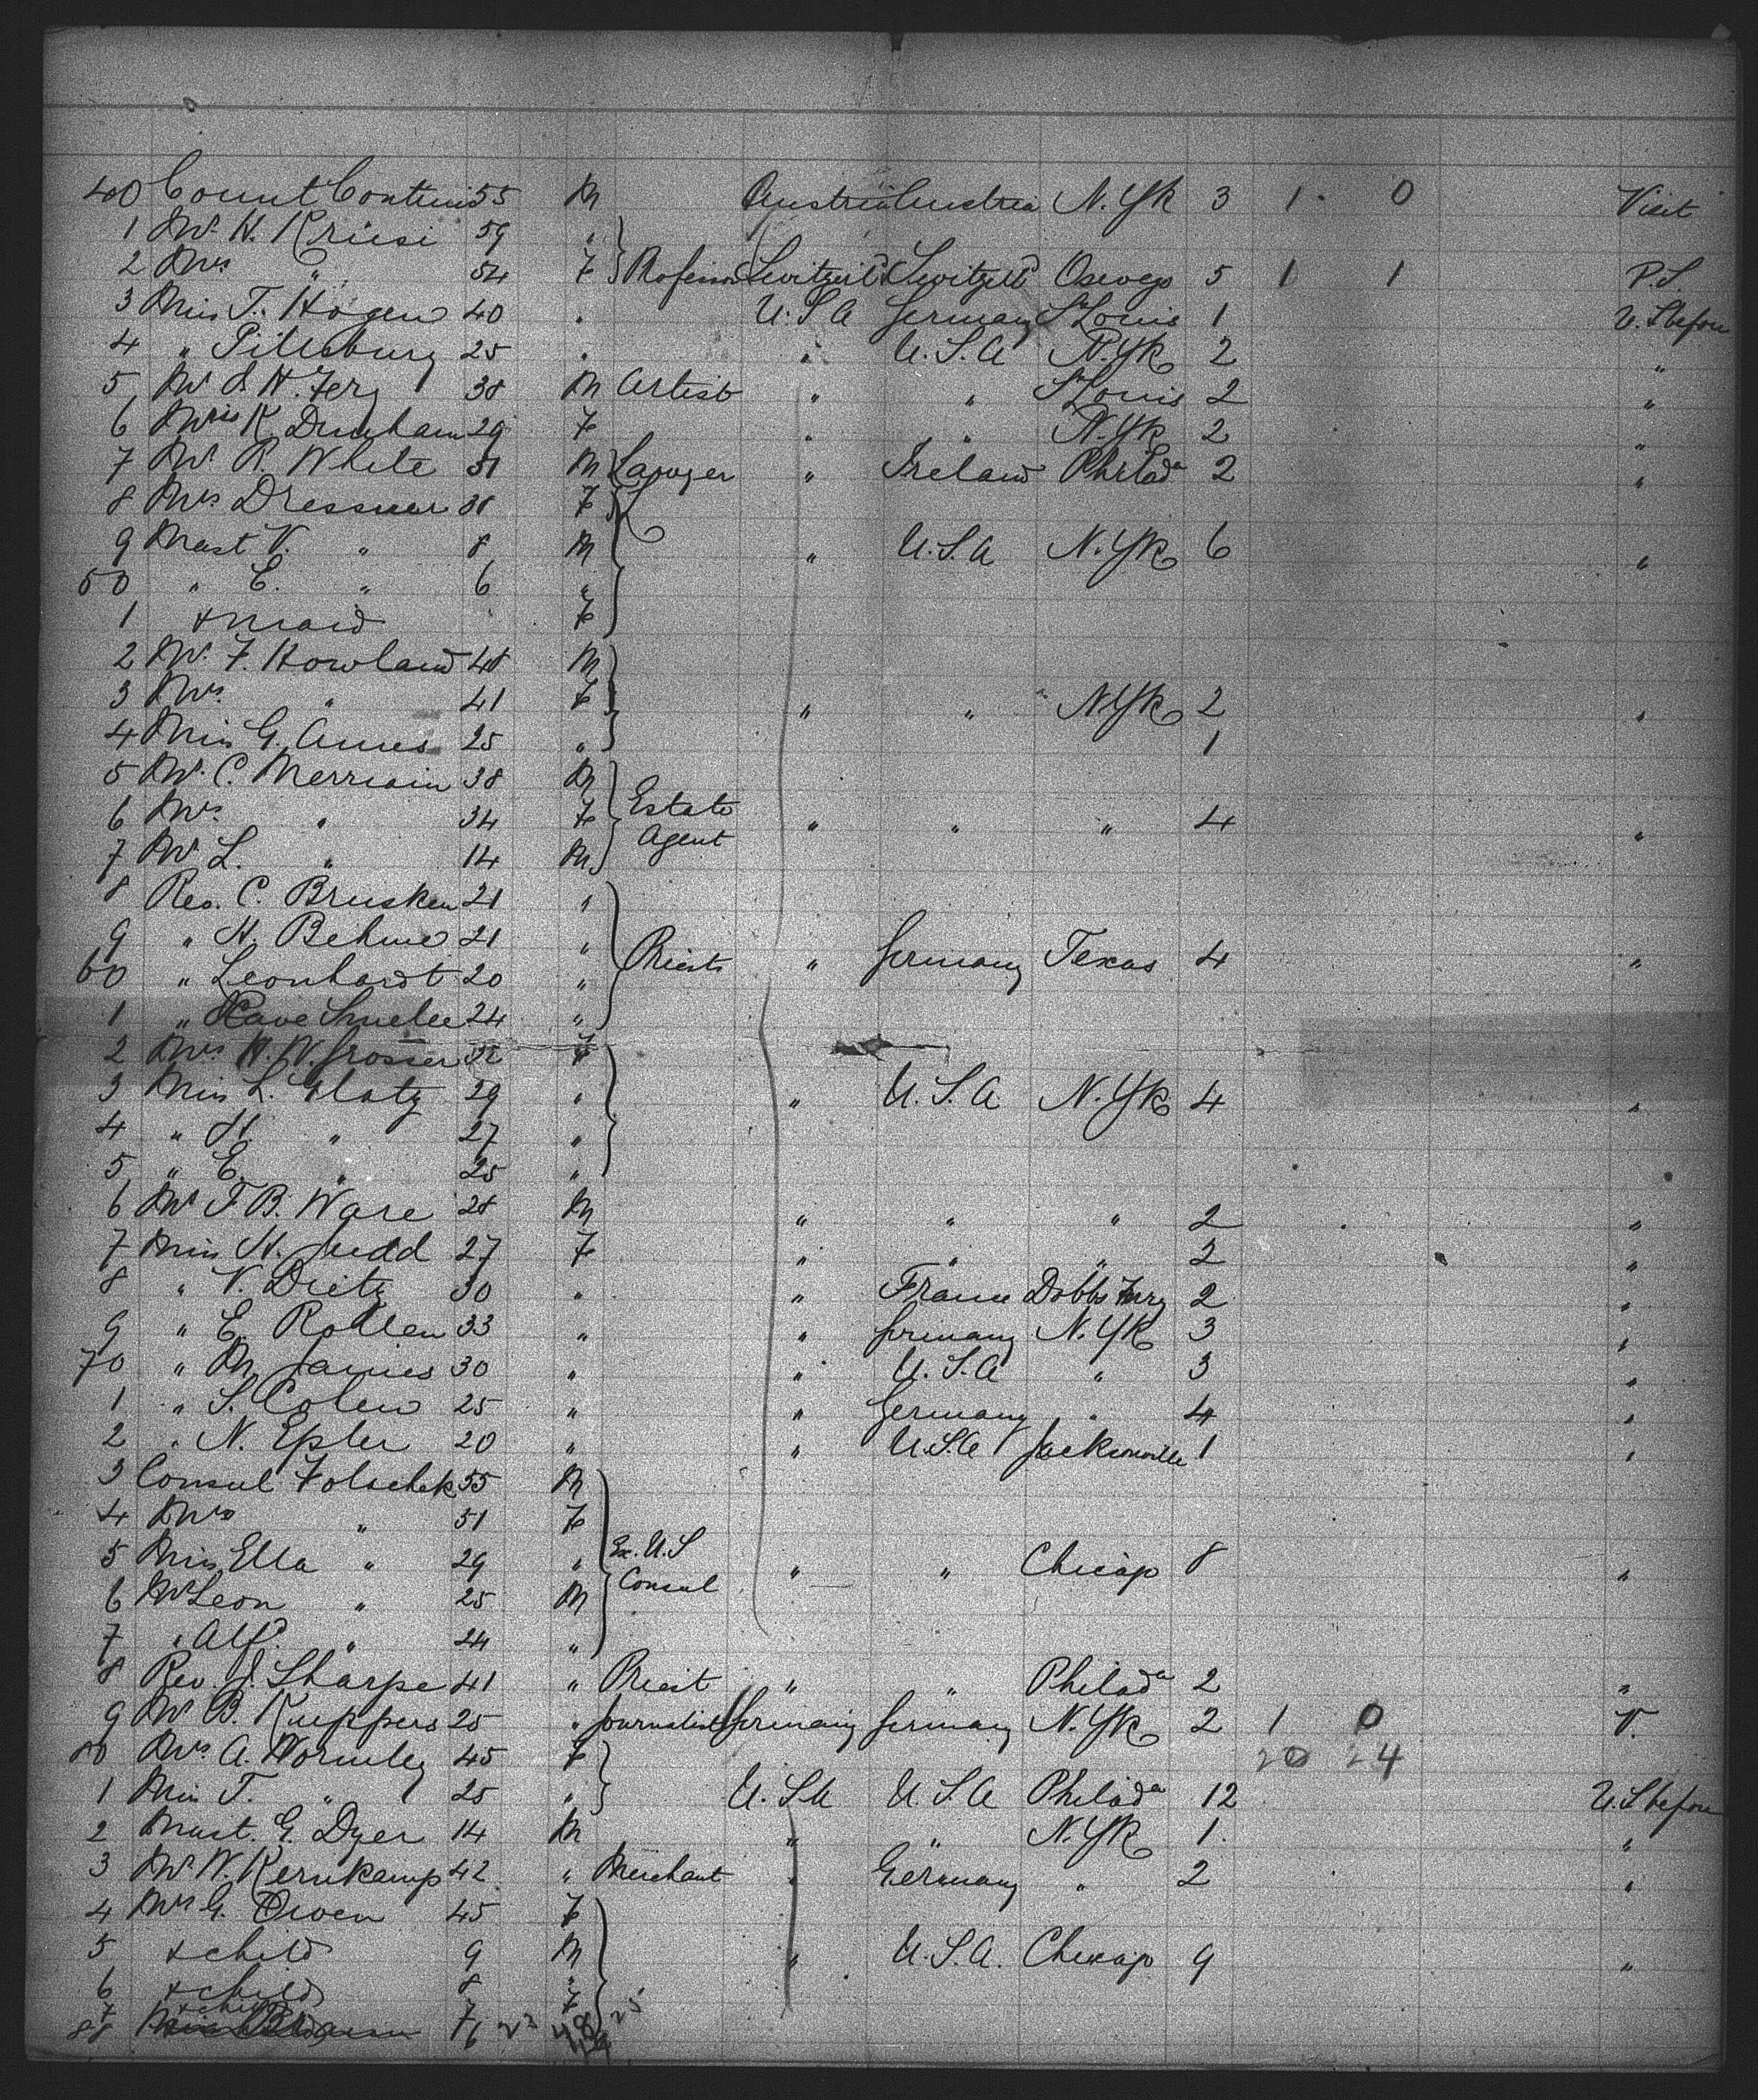 40 Count Contini 55 M Austria Austria N.Yk 3 1 0 Visit
1 Mr. H. Krüsi 59 "
2 Mrs " 54 F Professor Switzerld Switzerld Oswego 5 1 1 P.S.
3 Miss T. Hogen 40 " U.S.A Germany St Louis 1 U.S before
4 " Pillsbury 25 " " U.S.A N.Yk 2 "
5 Mr J. H. Fery 38 M Artist " " St Louis 2 "
6 Miss K. Dunham 29 F " " N.Yk 2 "
7 Mr. R. White 51 M Lawyer " Ireland Philada 2 "
8 Mrs Dresser 38 F
9 Mast V. " 8 M " U.S.A N.Yk 6 "
50 " E. " 6 "
1 + maid F
2 Mr. F. Howland 48 M
3 Mrs. " 41 F " " N.Yk 2 "
4 Miss G. Ames 25 " 1
5 Mr. C. Merriam 38 M
6 Mrs. " 34 F Estate Agent " " " 4 "
7 Mr L. " 14 M
8 Rev. C. Brusken 21 "
9 " H. Behme 21 "
60 " Leonhardt 20 " Priests " Germany Texas 4 "
1 " 24 "
2 Mrs H. W. Grosser 32 F
3 Miss L. 29 " " U.S.A N.Yk 4 "
4 " " 27 "
5 " E. " 25 "
6 Mr F. B. Ware 28 M " " " 2 "
7 Miss H. Judd 27 F " " " 2 "
8 " V. Dietz 30 " " France Dobbs Ferry 2 "
9 " E. Rollen 33 " " Germany N.Yk 3 "
70 " M. James 30 " " U.S.A " 3 "
1 " S. Cohen 25 " " Germany " 4 "
2 " N. Epler 20 " " U.S.A Jacksonville 1 "
3 Consul 55 M
4 Mrs " 51 F
5 Miss Ella " 29 " Ex. U.S Consul " " Chicago 8 "
6 Mr Leon " 25 M
7 " Alf. " 24 "
8 Rev. J. Sharpe 41 " Priest " " Philada 2 "
9 Mr B. Kueppers 25 " Journalist Germany Germany N.Yk 2 1 0 V.
80 Mrs A. Wormley 45 F 20 24
1 Miss T. " 25 " U.S.A U.S.A Philada 12 U.S before
2 Mast. G. Dyer 14 M " " N.Yk 1 "
3 Mr W. Kernkamp 42 " Merchant " Germany " 2 "
4 Mrs G. Owen 45 F
5 + child 9 M " U.S.A. Chicago 9 "
6 + child 8 "
7 + child 7 F
88 6 23 48 25